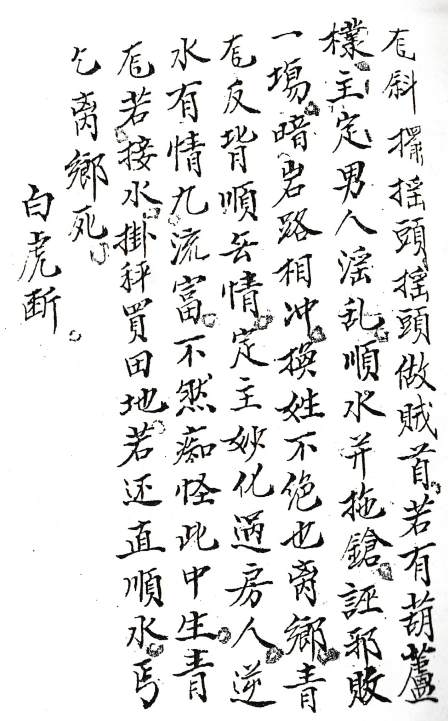 尨斜擺摇頭摇頭做賊首若有葫蘆
樸主定男人淫乱順水并拖鎗誣邪敗
一塲暗岩路相冲換姓不绝也离鄉青
尨反背順无情定主妙化過房人逆
水有情九流富不然痴怪此中生青
尨若接水掛秤買田地若还直順水丐
乞离鄉死
白虎断